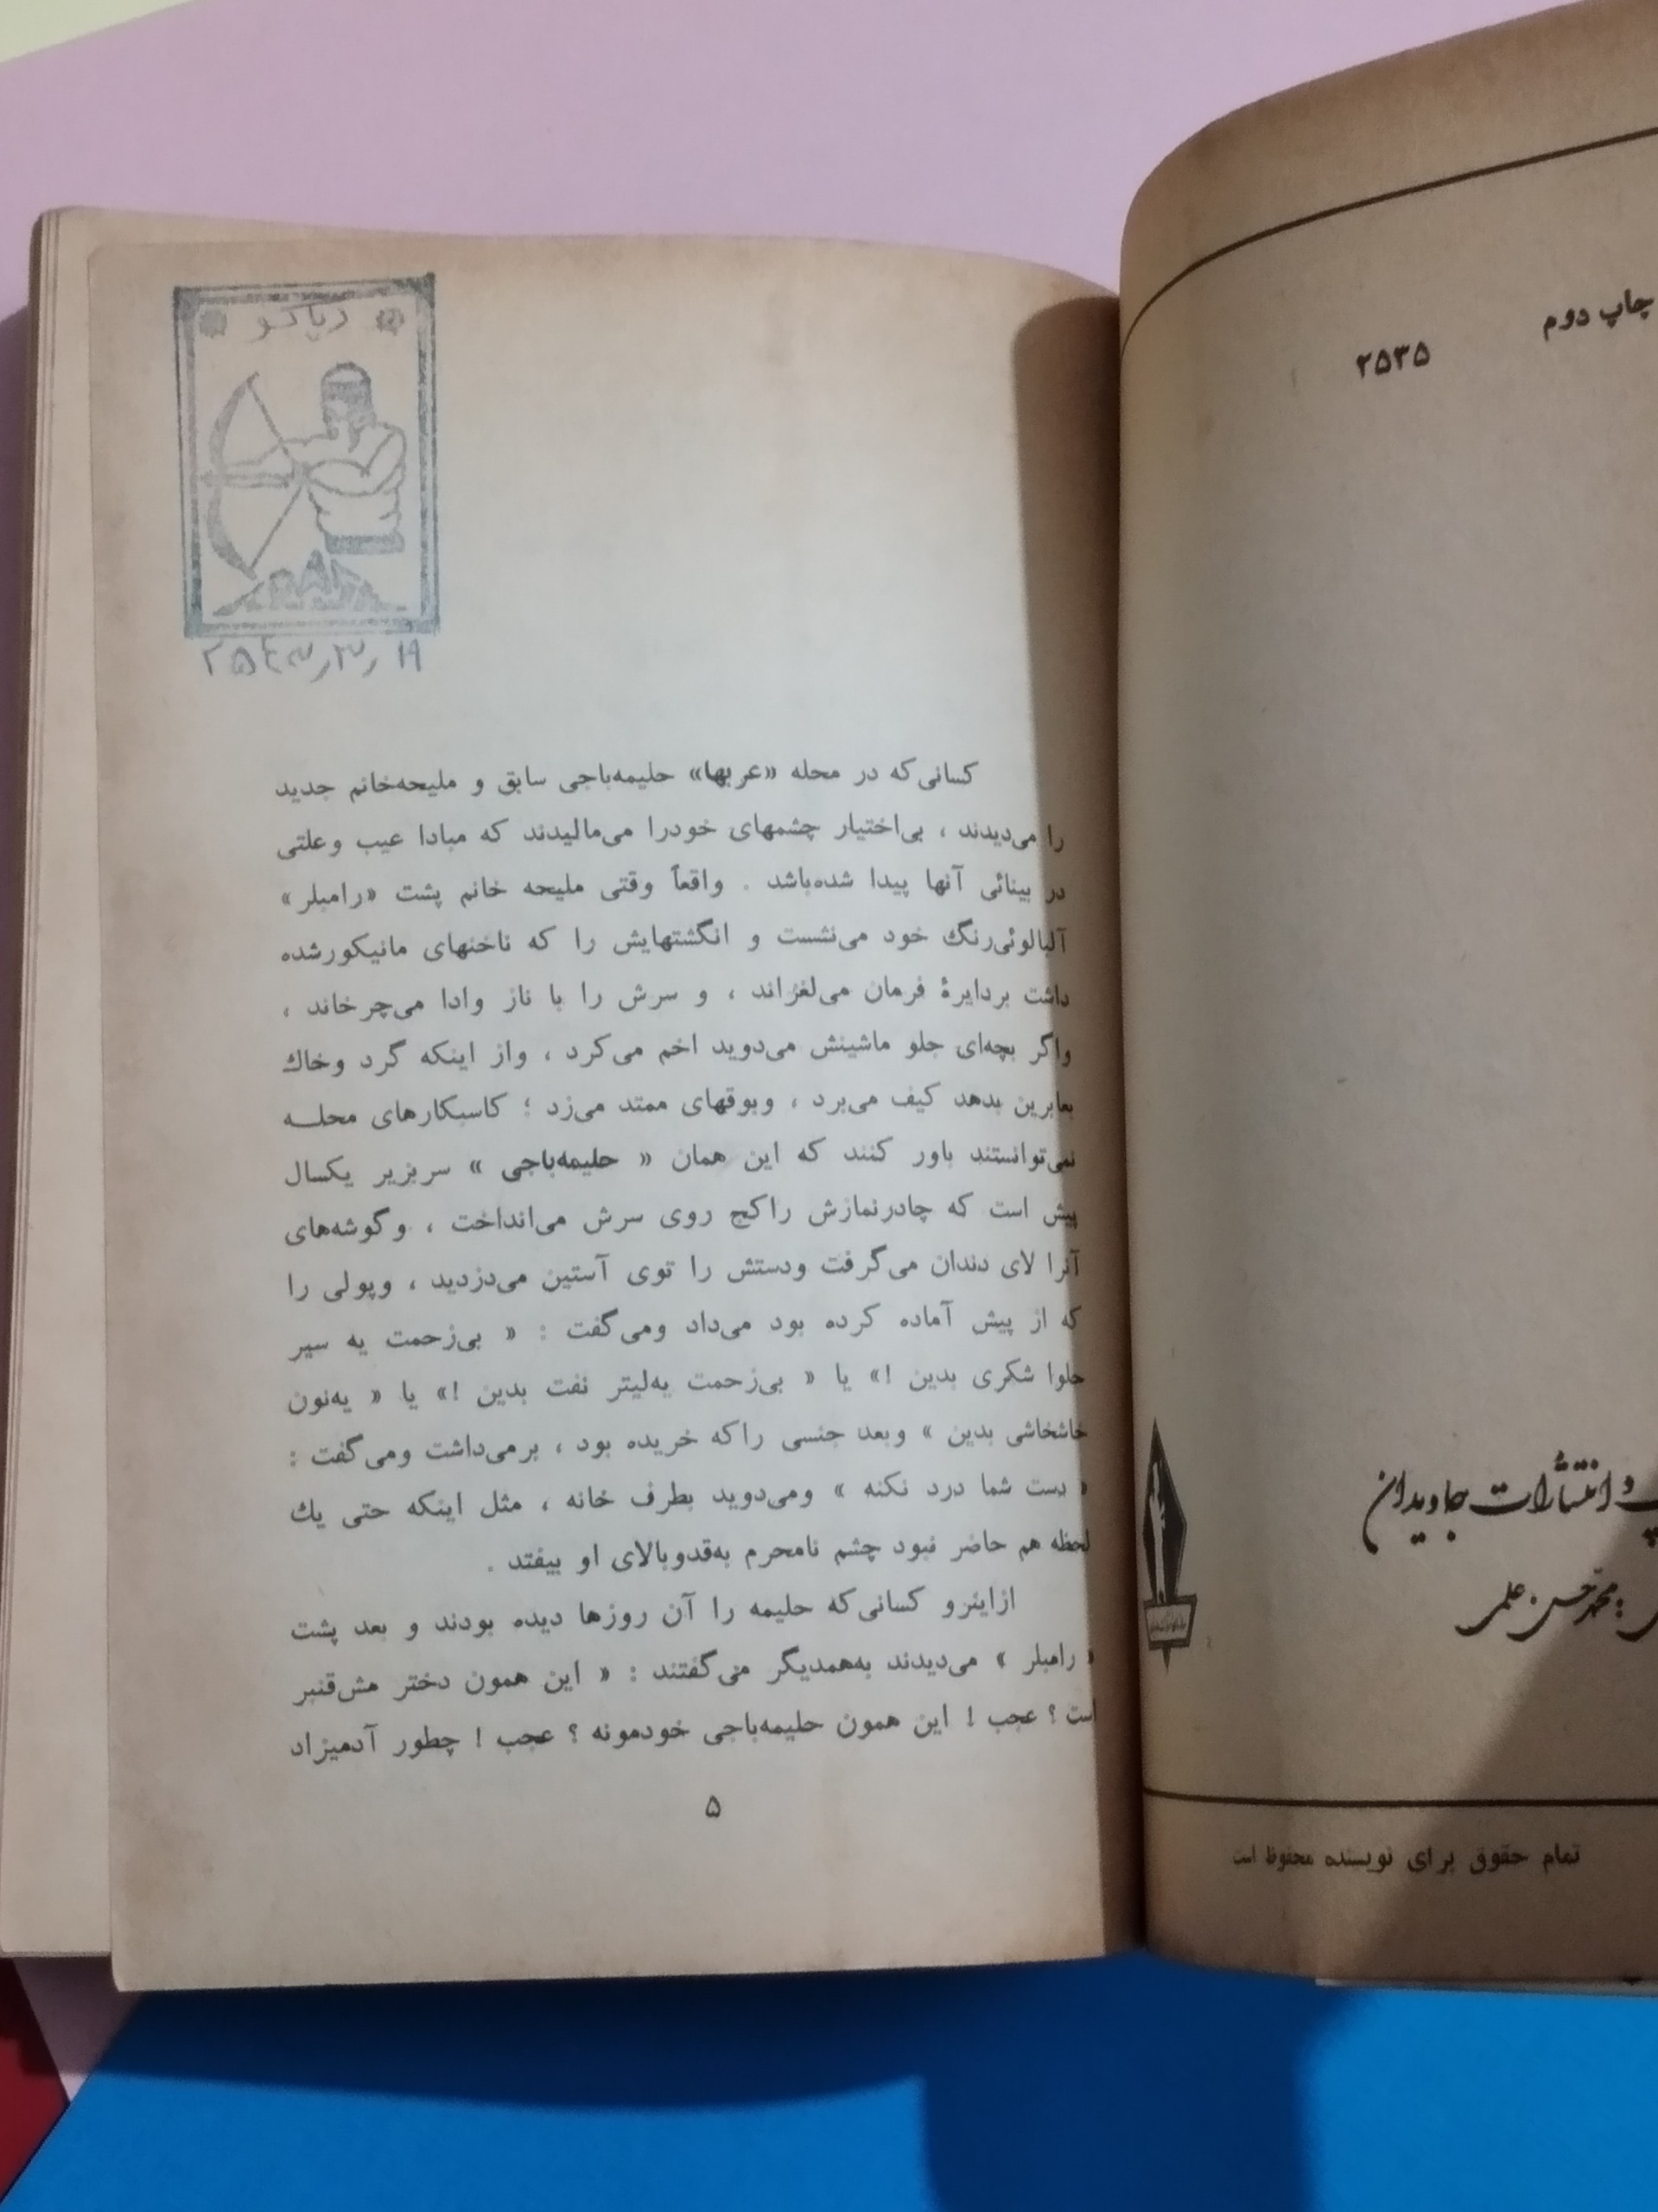 چاپ دوم
۲۵۳۵
و انتشارات جاویدان
محمدحسن علمی
تمام حقوق برای نویسنده محفوظ است
دیاکو
۲۵۴۳٫۳٫۱۹
کسانی‌که در محله «عربها» حلیمه‌باجی سابق و ملیحه‌خانم جدید
را می‌دیدند ، بی‌اختیار چشمهای خودرا می‌مالیدند که مبادا عیب وعلتی
در بینائی آنها پیدا شده‌باشد . واقعاً وقتی ملیحه خانم پشت «رامبلر»
آلبالوئی‌رنگ خود می‌نشست و انگشتهایش را که ناخنهای مانیکورشده
داشت بردایرهٔ فرمان می‌لغزاند ، و سرش را با ناز وادا می‌چرخاند ،
واگر بچه‌ای جلو ماشینش می‌دوید اخم می‌کرد ، واز اینکه گرد وخاك
بعابرین بدهد کیف می‌برد ، وبوقهای ممتد می‌زد ؛ کاسبکارهای محلـــه
نمی‌توانستند باور کنند که این همان « حلیمه‌باجی » سربزیر یکسال
پیش است که چادرنمازش راکج روی سرش می‌انداخت ، وگوشه‌های
آنرا لای دندان می‌گرفت ودستش را توی آستین می‌دزدید ، وپولی را
که از پیش آماده کرده بود می‌داد ومی‌گفت : « بی‌زحمت یه سیر
حلوا شکری بدین !» یا « بی‌زحمت یه‌لیتر نفت بدین !» یا « یه‌نون
خاشخاشی بدین » وبعد جنسی راکه خریده بود ، برمی‌داشت ومی‌گفت :
« دست شما درد نکنه » ومی‌دوید بطرف خانه ، مثل اینکه حتی یك
لحظه هم حاضر نبود چشم نامحرم به‌قدوبالای او بیفتد .
ازاینرو کسانی‌که حلیمه را آن روزها دیده بودند و بعد پشت
« رامبلر » می‌دیدند به‌همدیگر می‌گفتند : « این همون دختر مش‌قنبر
است ؟ عجب ! این همون حلیمه‌باجی خودمونه ؟ عجب ! چطور آدمیزاد
۵